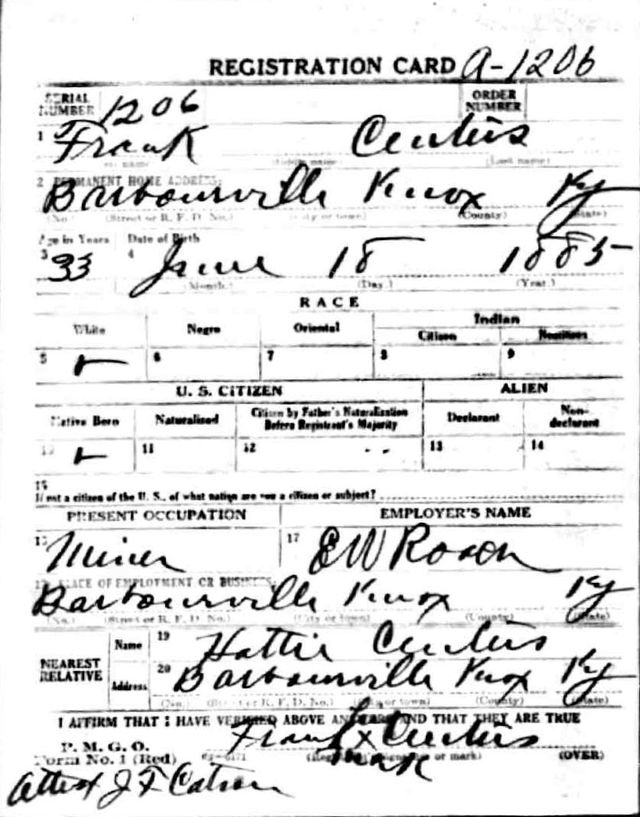 REGISTRATION CARD A-1206
SERIAL NUMBER 1206 ORDER NUMBER
1 Frank Centers
(Middle name) (Last name)
2 PERMANENT HOME ADDRESS:
Barbourville Knox Ky
(No.) (Street or R. F. D. No.) (City or town) (County) (State)
Age in Years Date of Birth
3 33 4 June 18 1885
(Month.) (Day.) (Year.)
RACE
White Negro Oriental Indian
Citizen
5 6 7 8 9
U. S. CITIZEN ALIEN
Native Born Naturalized Citizen by Father's Naturalization Before Registrant's Majority Declarant Non-declarant
10 11 12 13 14
15
If not a citizen of the U. S., of what nation are you a citizen or subject?
PRESENT OCCUPATION EMPLOYER'S NAME
16 Miner 17 E W
PLACE OF EMPLOYMENT OR BUSINESS:
Barbourville Knox Ky
(No.) (Street or R. F. D. No.) (City or town) (County) (State)
NEAREST RELATIVE
Name 19 Hattie Centers
Address 20 Barbourville Knox Ky
(No.) (Street or R. F. D. No.) (City or town) (County) (State)
I AFFIRM THAT I HAVE VERIFIED ABOVE ANSWERS AND THAT THEY ARE TRUE
Frank x Centers
P. M. G. O.
Form No. 1 (Red) (Registrant's signature or mark) (OVER)
mark
Attest J F